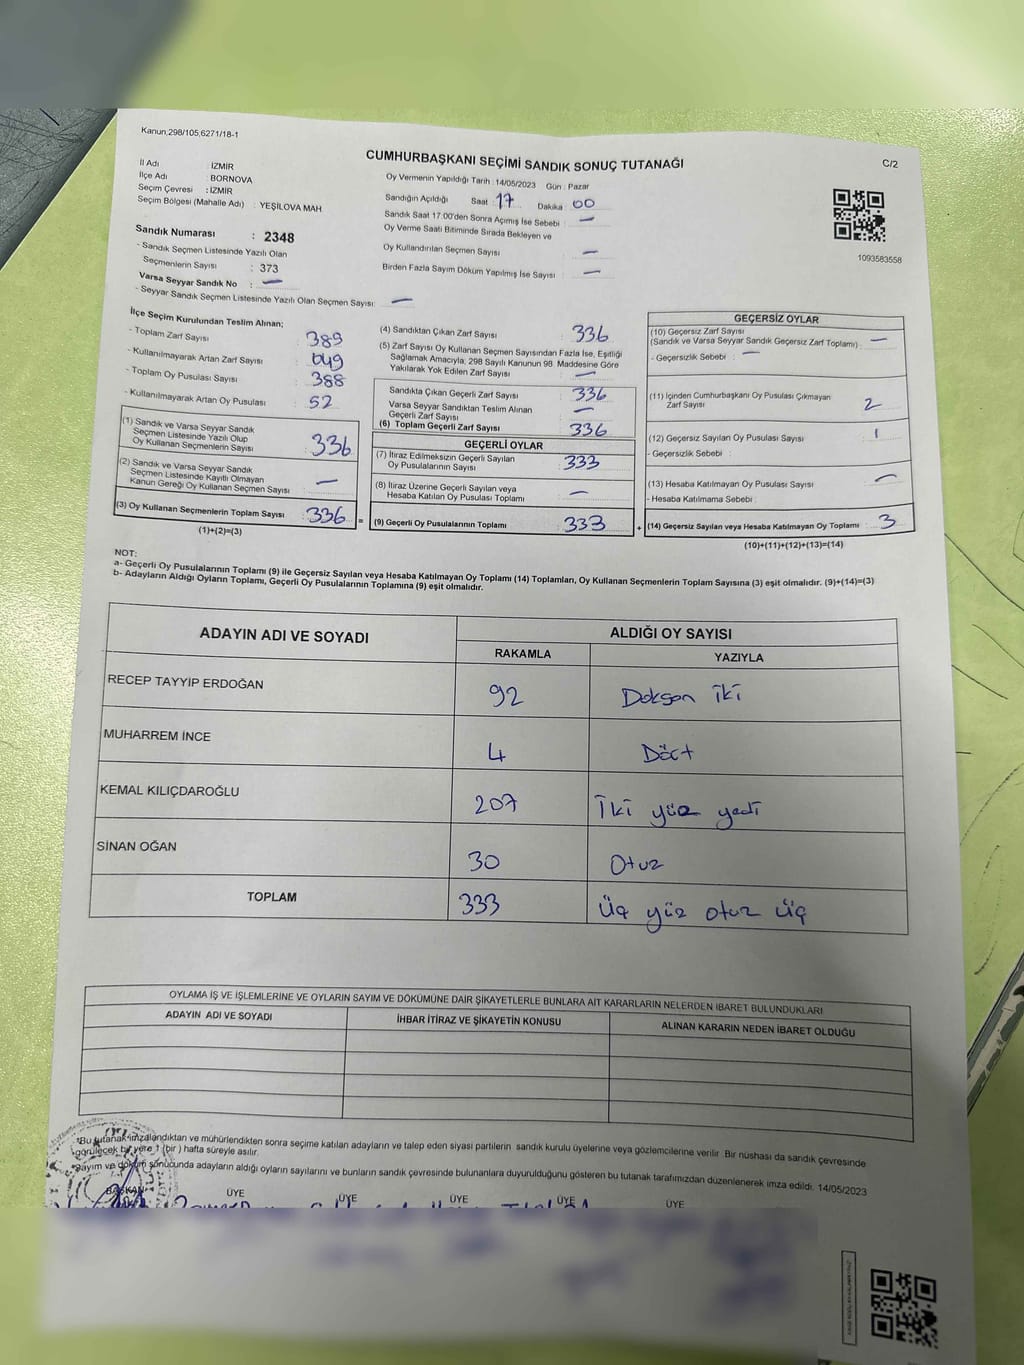 Kanun,298/105,6271/18-1
C/2
CUMHURBAŞKANI SEÇİMİ SANDIK SONUÇ TUTANAĞI
İl Adı : İZMİR
İlçe Adı : BORNOVA
Seçim Çevresi : İZMİR
Seçim Bölgesi (Mahalle Adı) : YEŞİLOVA MAH
Sandık Numarası : 2348
- Sandık Seçmen Listesinde Yazılı Olan
Seçmenlerin Sayısı : 373
Varsa Seyyar Sandık No : —
- Seyyar Sandık Seçmen Listesinde Yazılı Olan Seçmen Sayısı: —
Oy Vermenin Yapıldığı Tarih : 14/05/2023 Gün : Pazar
Sandığın Açıldığı Saat 17 Dakika 00
Sandık Saat 17.00'den Sonra Açımış İse Sebebi : —
Oy Verme Saati Bitiminde Sırada Bekleyen ve
Oy Kullandırılan Seçmen Sayısı : —
Birden Fazla Sayım Döküm Yapılmış İse Sayısı : —
1093583558
İlçe Seçim Kurulundan Teslim Alınan;
- Toplam Zarf Sayısı : 389
- Kullanılmayarak Artan Zarf Sayısı : 049
- Toplam Oy Pusulası Sayısı : 388
- Kullanılmayarak Artan Oy Pusulası : 52
(1) Sandık ve Varsa Seyyar Sandık
Seçmen Listesinde Yazılı Olup
Oy Kullanan Seçmenlerin Sayısı : 336
(2) Sandık ve Varsa Seyyar Sandık
Seçmen Listesinde Kayıtlı Olmayan
Kanun Gereği Oy Kullanan Seçmen Sayısı : —
(3) Oy Kullanan Seçmenlerin Toplam Sayısı : 336 =
(1)+(2)=(3)
(4) Sandıktan Çıkan Zarf Sayısı : 336
(5) Zarf Sayısı Oy Kullanan Seçmen Sayısından Fazla İse, Eşitliği
Sağlamak Amacıyla; 298 Sayılı Kanunun 98. Maddesine Göre
Yakılarak Yok Edilen Zarf Sayısı : —
Sandıkta Çıkan Geçerli Zarf Sayısı : 336
Varsa Seyyar Sandıktan Teslim Alınan
Geçerli Zarf Sayısı : —
(6) Toplam Geçerli Zarf Sayısı : 336
GEÇERLİ OYLAR
(7) İtiraz Edilmeksizin Geçerli Sayılan
Oy Pusulalarının Sayısı : 333
(8) İtiraz Üzerine Geçerli Sayılan veya
Hesaba Katılan Oy Pusulası Toplamı : —
(9) Geçerli Oy Pusulalarının Toplamı : 333 +
GEÇERSİZ OYLAR
(10) Geçersiz Zarf Sayısı
(Sandık ve Varsa Seyyar Sandık Geçersiz Zarf Toplamı) : —
- Geçersizlik Sebebi : —
(11) İçinden Cumhurbaşkanı Oy Pusulası Çıkmayan
Zarf Sayısı : 2
(12) Geçersiz Sayılan Oy Pusulası Sayısı : 1
- Geçersizlik Sebebi :
(13) Hesaba Katılmayan Oy Pusulası Sayısı : —
- Hesaba Katılmama Sebebi :
(14) Geçersiz Sayılan veya Hesaba Katılmayan Oy Toplamı : 3
(10)+(11)+(12)+(13)=(14)
NOT:
a- Geçerli Oy Pusulalarının Toplamı (9) ile Geçersiz Sayılan veya Hesaba Katılmayan Oy Toplamı (14) Toplamları, Oy Kullanan Seçmenlerin Toplam Sayısına (3) eşit olmalıdır. (9)+(14)=(3)
b- Adayların Aldığı Oyların Toplamı, Geçerli Oy Pusulalarının Toplamına (9) eşit olmalıdır.
ADAYIN ADI VE SOYADI ALDIĞI OY SAYISI
RAKAMLA YAZIYLA
RECEP TAYYİP ERDOĞAN 92 Doksan iki
MUHARREM İNCE 4 Dört
KEMAL KILIÇDAROĞLU 207 İki yüz yedi
SİNAN OĞAN 30 Otuz
TOPLAM 333 Üç yüz otuz üç
OYLAMA İŞ VE İŞLEMLERİNE VE OYLARIN SAYIM VE DÖKÜMÜNE DAİR ŞİKAYETLERLE BUNLARA AİT KARARLARIN NELERDEN İBARET BULUNDUKLARI
ADAYIN ADI VE SOYADI İHBAR İTİRAZ VE ŞİKAYETİN KONUSU ALINAN KARARIN NEDEN İBARET OLDUĞU
Bu tutanak imzalandıktan ve mühürlendikten sonra seçime katılan adayların ve talep eden siyasi partilerin sandık kurulu üyelerine veya gözlemcilerine verilir. Bir nüshası da sandık çevresinde
görülecek bir yere 1 (bir) hafta süreyle asılır.
Sayım ve döküm sonucunda adayların aldığı oyların sayılarını ve bunların sandık çevresinde bulunanlara duyurulduğunu gösteren bu tutanak tarafımızdan düzenlenerek imza edildi. 14/05/2023
BAŞKAN ÜYE ÜYE ÜYE ÜYE ÜYE